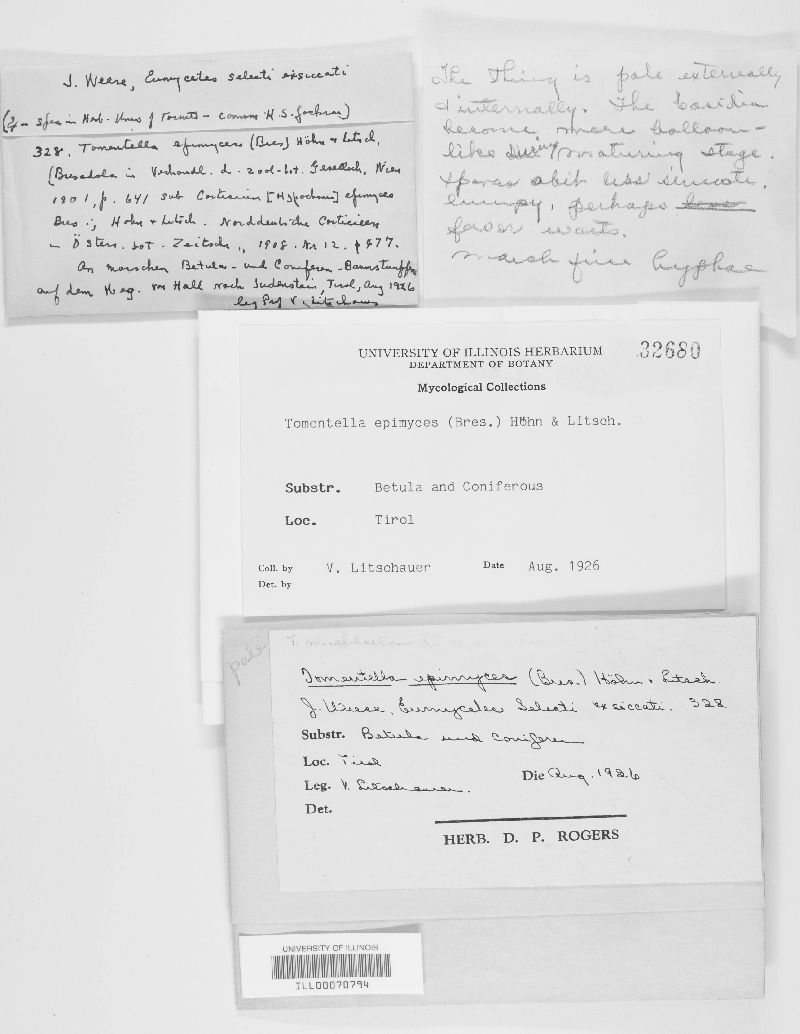 J. Weese, Eumycetes selecti exsiccati
Herb. Univ of Toronto - comm. H. S. Jackson)
328. Tomentella epimyces (Bres) Höhn & Litsch,
(Bresadola in Verhandl. d. zool-bot. Gesellsch, Wien
1901, p. 641 sub Corticium [Hypochnus] epimyces
Bres.; Höhn & Litsch. Norddeutsche Corticieen
in Österr. bot. Zeitschr., 1908. Nr 12. p 477.
An morschen Betula- und Coniferen-Baumstümpfen
auf dem Weg. von Hall nach Judenstein, Tirol, Aug 1926
leg Prof V. Litschauer
The thing is pale externally
& internally. The basidia
become more balloon-
like maturing stage.
Spores a bit less sinuate,
lumpy, perhaps
fewer warts.
Much finer hyphae
UNIVERSITY OF ILLINOIS HERBARIUM
32680
DEPARTMENT OF BOTANY
Mycological Collections
Tomentella epimyces (Bres.) Höhn & Litsch.
Substr. Betula and Coniferous
Loc. Tirol
Coll. by V. Litschauer Date Aug. 1926
Det. by
pale
Tomentella epimyces (Bres.) Höhn & Litsch
J. Weese, Eumycetes Selecti exsiccati. 328.
Substr. Betula und Coniferen
Loc. Tirol
Die Aug. 1926
Leg. V. Litschauer.
Det.
HERB. D. P. ROGERS
UNIVERSITY OF ILLINOIS
ILL00070794